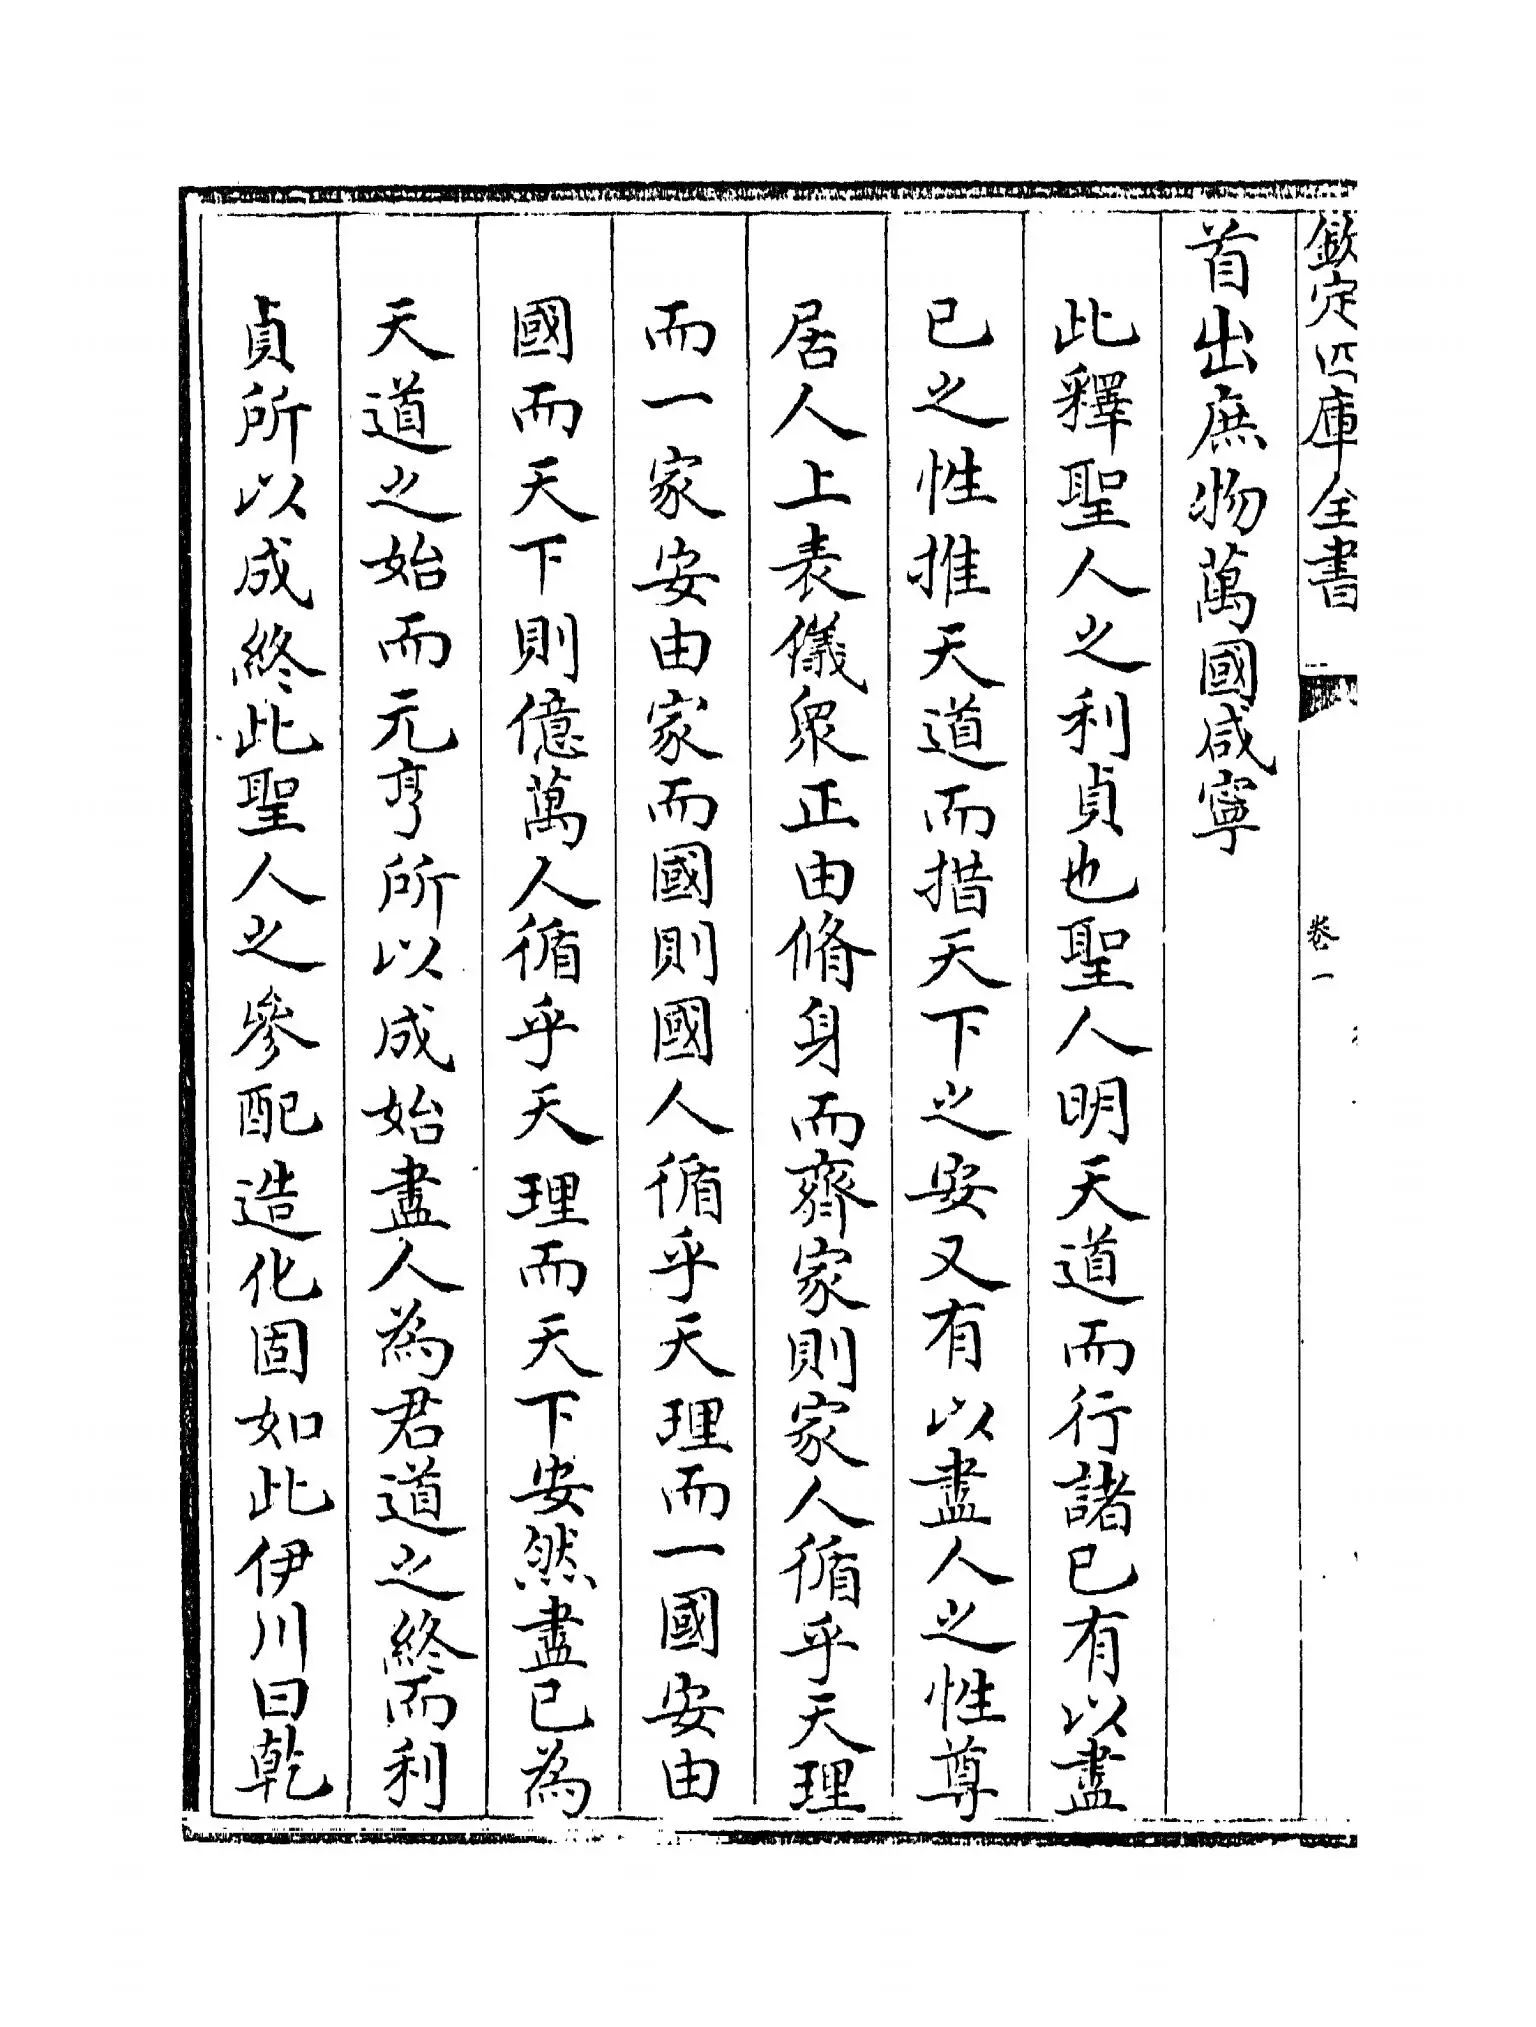 欽定四庫全書
卷一
首出庶物萬國咸寧
此釋聖人之利貞也聖人明天道而行諸已有以盡
已之性推天道而措天下之安又有以盡人之性尊
居人上表儀衆正由脩身而齊家則家人循乎天理
而一家安由家而國則國人循乎天理而一國安由
國而天下則億萬人循乎天理而天下安然盡已為
天道之始而元亨所以成始盡人為君道之終而利
貞所以成終此聖人之參配造化固如此伊川曰乾